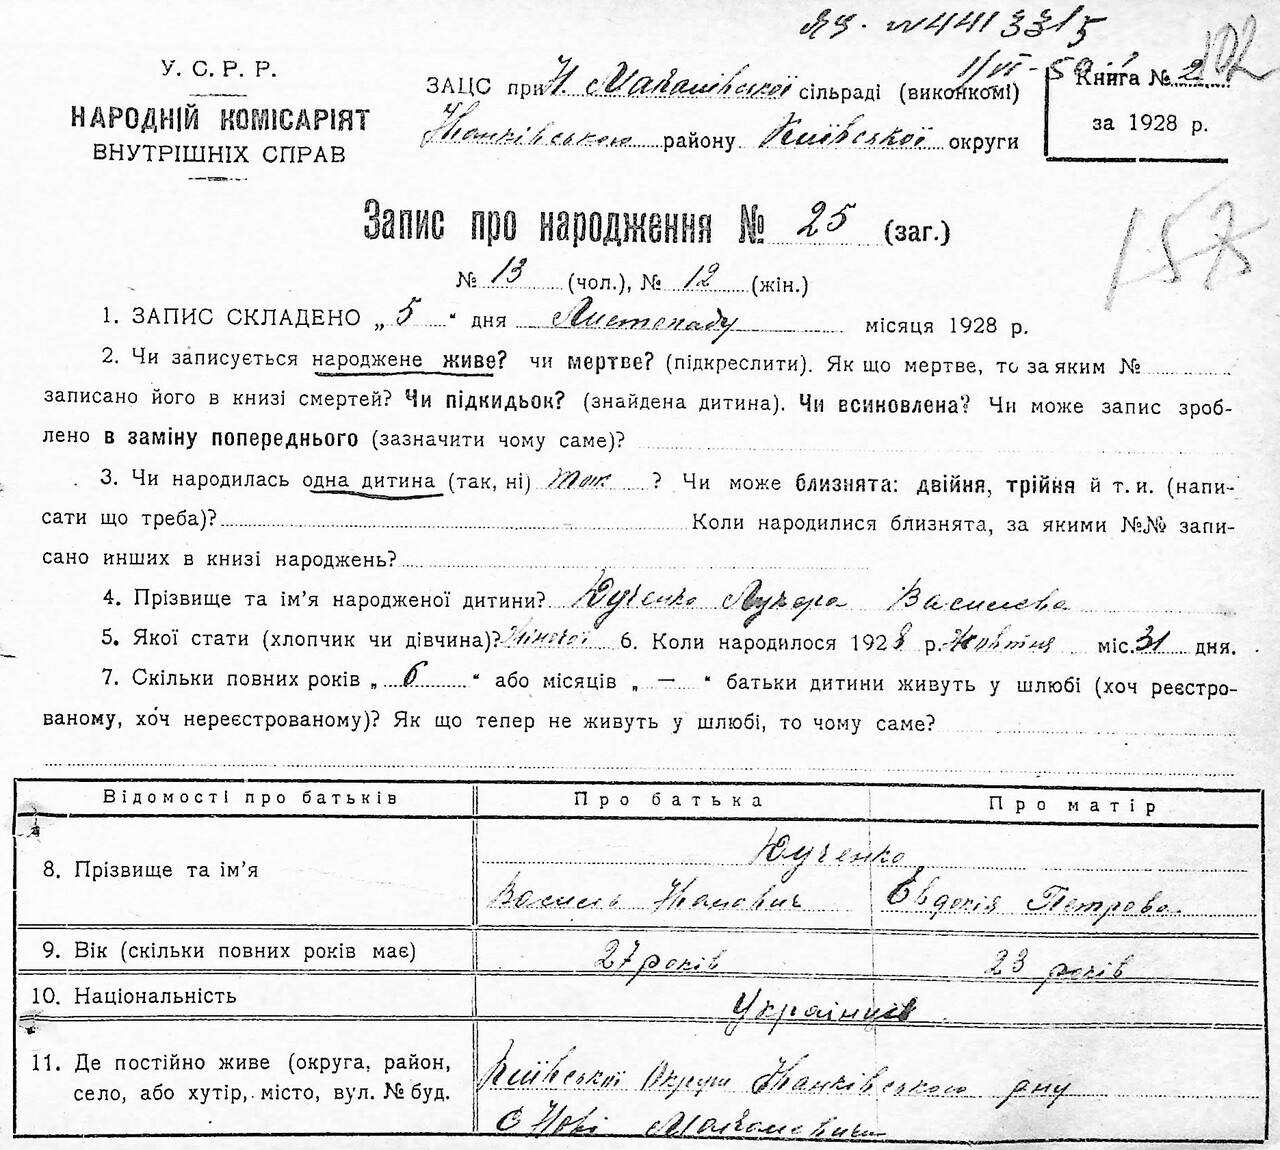 ЯЩ. № 4413315
1/VI-50
102
У. С. Р. Р.
НАРОДНІЙ КОМІСАРІЯТ
ВНУТРІШНІХ СПРАВ
ЗАЦС при Н. Макалівської сільраді (виконкомі)
Іванківського району Київської округи
Книга № 2
за 1928 р.
157
Запис про народження № 25 (заг.)
№ 13 (чол.), № 12 (жін.)
1. ЗАПИС СКЛАДЕНО „ 5 “ дня Листопаду місяця 1928 р.
2. Чи записується народжене живе? чи мертве? (підкреслити). Як що мертве, то за яким №
записано його в книзі смертей? Чи підкидьок? (знайдена дитина). Чи всиновлена? Чи може запис зроб-
лено в заміну попереднього (зазначити чому саме)?
3. Чи народилась одна дитина (так, ні) так ? Чи може близнята: двійня, трійня й т. и. (напи-
сати що треба)? Коли народилися близнята, за якими №№ запи-
сано инших в книзі народжень?
4. Прізвище та ім’я народженої дитини? Ющенко Василєва
5. Якої стати (хлопчик чи дівчина)? жіночої 6. Коли народилося 1928 р. Жовтня міс. 31 дня.
7. Скільки повних років „ 6 “ або місяців „ — “ батьки дитини живуть у шлюбі (хоч реєстро-
ваному, хоч нереєстрованому)? Як що тепер не живуть у шлюбі, то чому саме?
Відомості про батьків Про батька Про матір
8. Прізвище та ім’я Ющенко
Василь Іванович Евдокія Петрова
9. Вік (скільки повних років має) 27 років 23 років
10. Національність Українці
11. Де постійно живе (округа, район, село, або хутір, місто, вул. № буд. Київської Округи Іванківського р-ну
с Нові